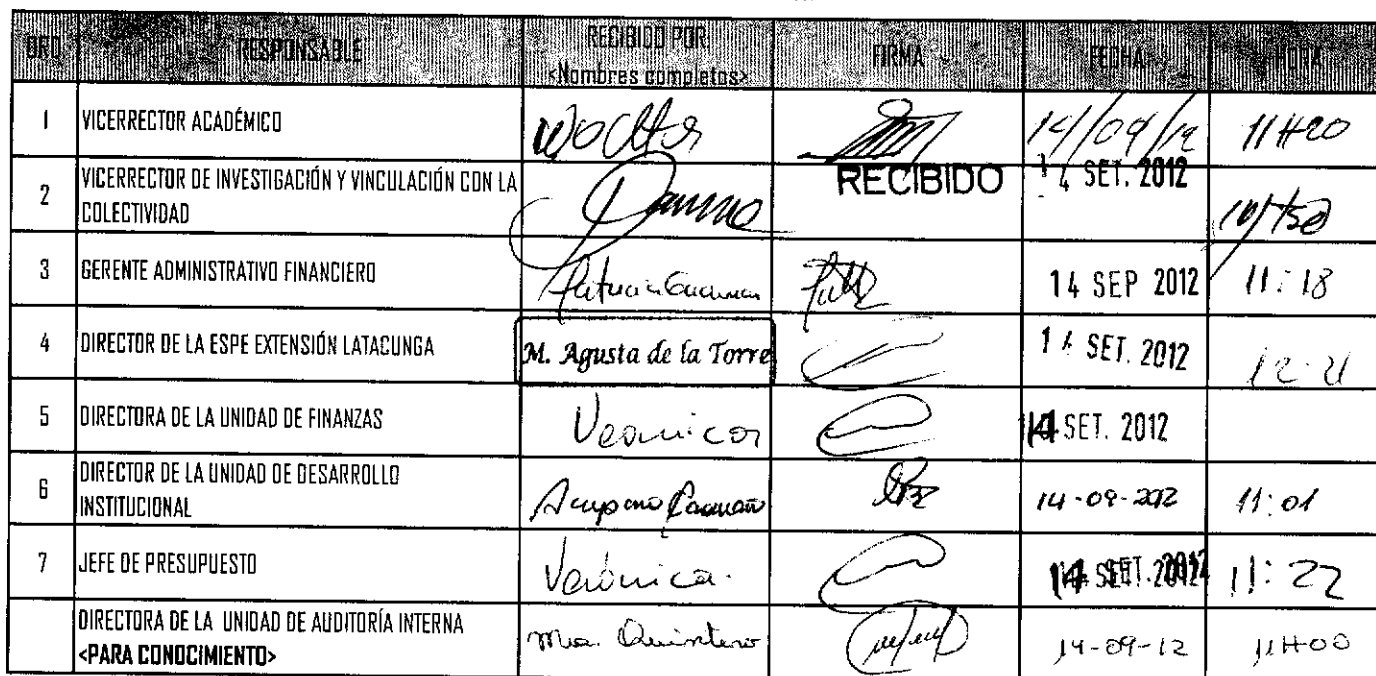 ORD RESPONSABLE RECIBIDO POR: FIRMA FECHA HORA
<Nombres completos>
1 VICERRECTOR ACADÉMICO 14/09/12 11H20
2 VICERRECTOR DE INVESTIGACIÓN Y VINCULACIÓN CON LA RECIBIDO 14 SET. 2012
COLECTIVIDAD
3 GERENTE ADMINISTRATIVO FINANCIERO 14 SEP 2012 11:18
4 DIRECTOR DE LA ESPE EXTENSIÓN LATACUNGA M. Agusta de la Torre 14 SET. 2012
5 DIRECTORA DE LA UNIDAD DE FINANZAS Veronica 14 SET. 2012
6 DIRECTOR DE LA UNIDAD DE DESARROLLO
INSTITUCIONAL 14-09-2012 11:01
7 JEFE DE PRESUPUESTO Verónica. 14 SET. 2012 11:22
DIRECTORA DE LA UNIDAD DE AUDITORÍA INTERNA
<PARA CONOCIMIENTO> Ma. Quintero 14-09-12 11H00